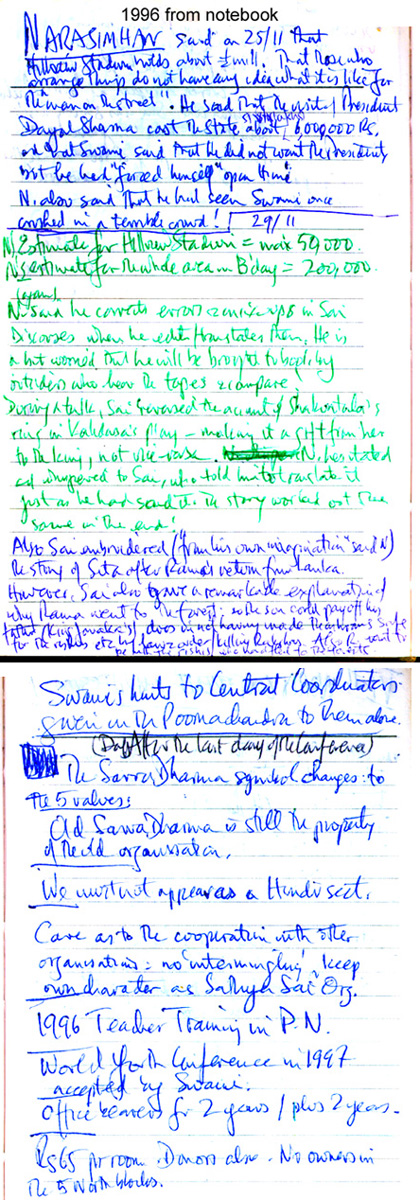 1996 from notebook
NARASIMHAN said on 25/11 that
Hillview Stadium holds about ½ mill. That those who
arrange things do not have any idea what it is like for
"the man on the street". He said that the visit of President
Dayal Sharma cost the State about 6,000,000 Rs,
and that Swami said that he did not want the Presidenty
but he had "forced himself" upon him.
N. also said that he had seen Swami once
crushed in a terrible crowd! 29/11
N. Estimate for Hillview Stadium = max 50,000.
N's estimate for the whole area on B'day = 200,000.
N. said he corrects errors & mix-ups in Sai
Discourses when he edits/translates them. He is
a bit worried that he will be brought to book by
outsiders who hear the tapes & compare.
During a talk, Sai reversed the account of Shakuntala's
ring in Kalidasa's play – making it a gift from her
to the king, not vice-versa. N. hesitated
and whispered to Sai, who told him to translate it
just as he had said it. The story worked out the
same in the end!
Also Sai embroidered ("from his own imagination" said N)
the story of Sita after Rama's return from Lanka.
However, Sai also gave a remarkable explanation of
why Rama went to the forest: so the son could pay off his
father's (King
Swami's hints to Central Coordinators
given in the Poornachandra to them alone.
(Day After the last day of the Conference)
The Sarva Dharma symbol changes: to
the 5 values:
Old Sarva Dharma is still the property
of the old organisation.
We must not appear as a Hindu sect.
Care as to the cooperation with other
organisations: no 'intermingling', keep
own character as Sathya Sai Org.
1996 Teacher Training in P.N.
World Youth Conference in 1997
accepted by Swami.
Office bearers for 2 years / plus 2 years.
Rs65 per room. Donors also. No owners in
the 5 North blocks.